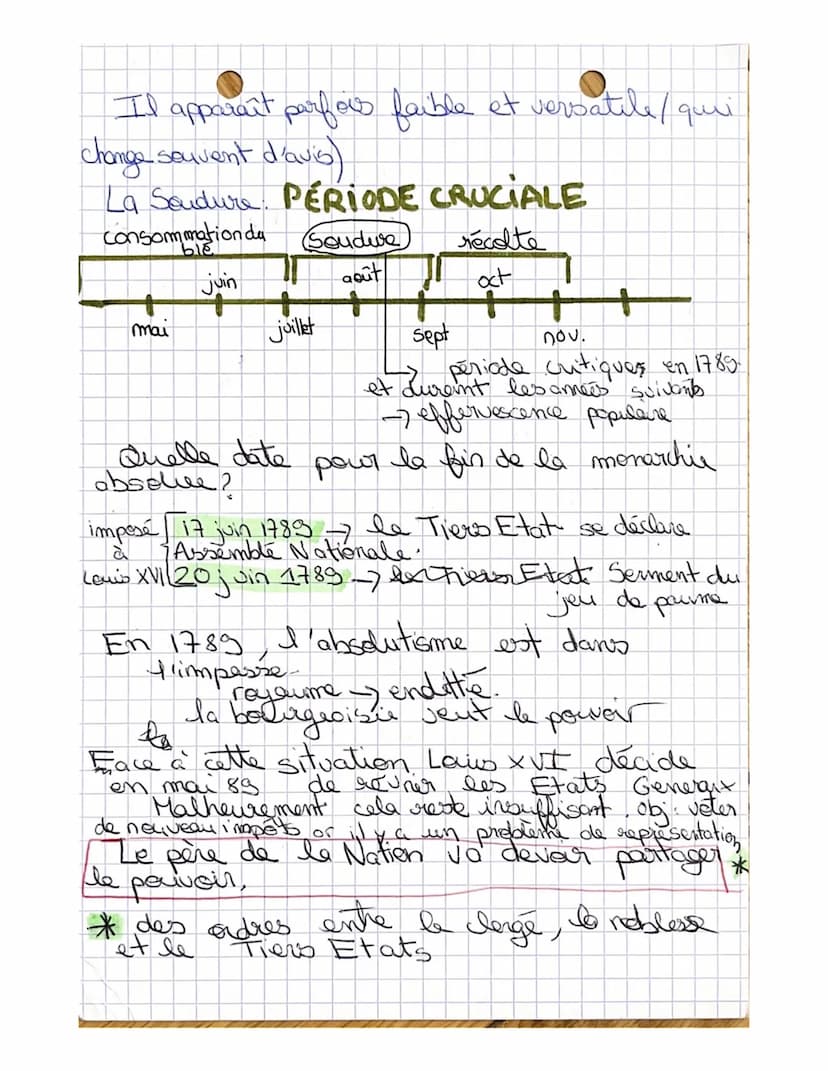 Il apparaît parfois faible et versatile/ qui
change souvent d'avis)
La Soudure: PÉRIODE CRUCIALE
consommation du
blé
Soudure
récolte
juin
août
oct
mai
juillet
sept
nov.
→ période critiques en 1789
et durant les années suivants
→ effervescence populaire
Quelle date pour la fin de la monarchie
absolue?
imposé 17 juin 1789 → le Tiers Etat se déclare
à Assemblé Nationale.
Louis XVI 20 juin 1789 → les Tiers Etat Serment du
jeu de paume
En 1789, l'absolutisme est dans
l'impasse
royaume → endetté.
la bourgeoisie veut le pouvoir
Face à cette situation Louis XVI décide
en mai 89 de réunir les Etats Generaux
Malheurement cela reste insuffisant. obj: voter
de nouveau impôts or il y a un problème de représentation
Le père de la Nation va devoir partager *
le pouvoir,
* des ordres entre le clergé, la noblesse
et le Tiers Etats